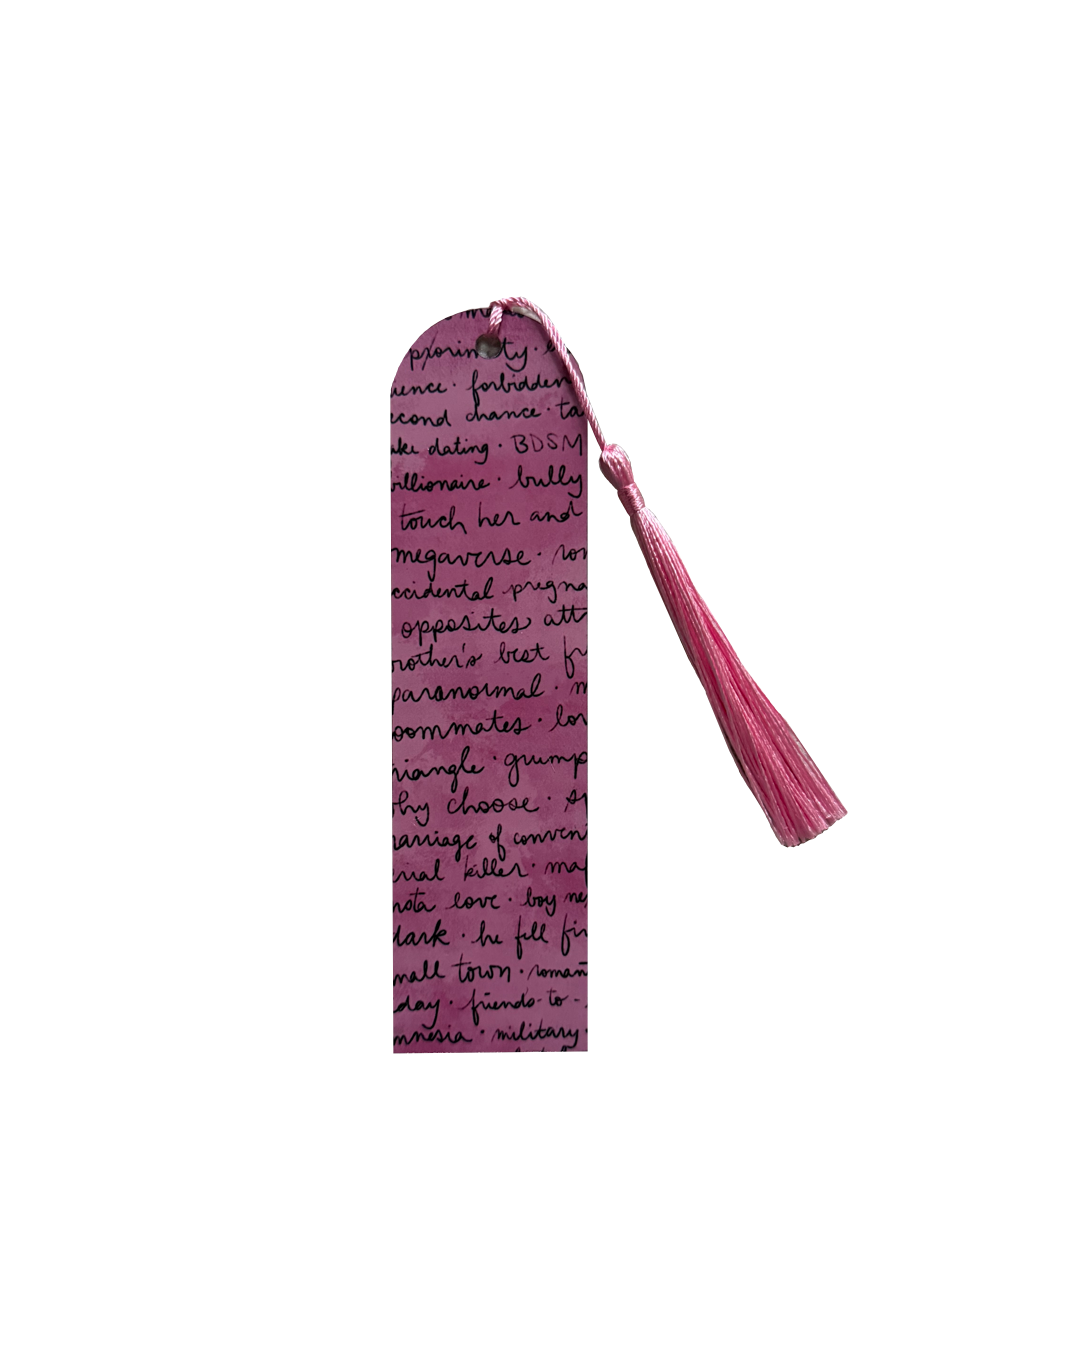 pxorimity ·
uence · forbidden
econd chance · ta
ake dating · BDSM
villionaire · bully
touch her and
megaverse · rom
ccidental pregna
opposites att
rother's best fr
paranormal · m
oommates · lov
riangle · grump
why choose · s
narriage of conveni
erial killer · maf
nsta love · boy ne
dark · he fell fir
mall town · roman
day · friends-to-
mnesia · military ·